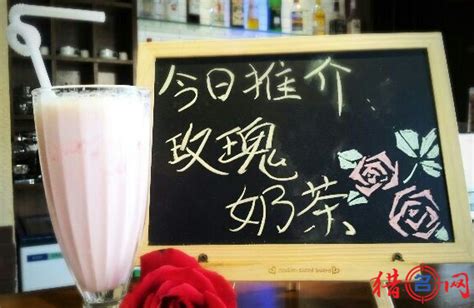 今日推介
玫瑰
奶茶
猎名网